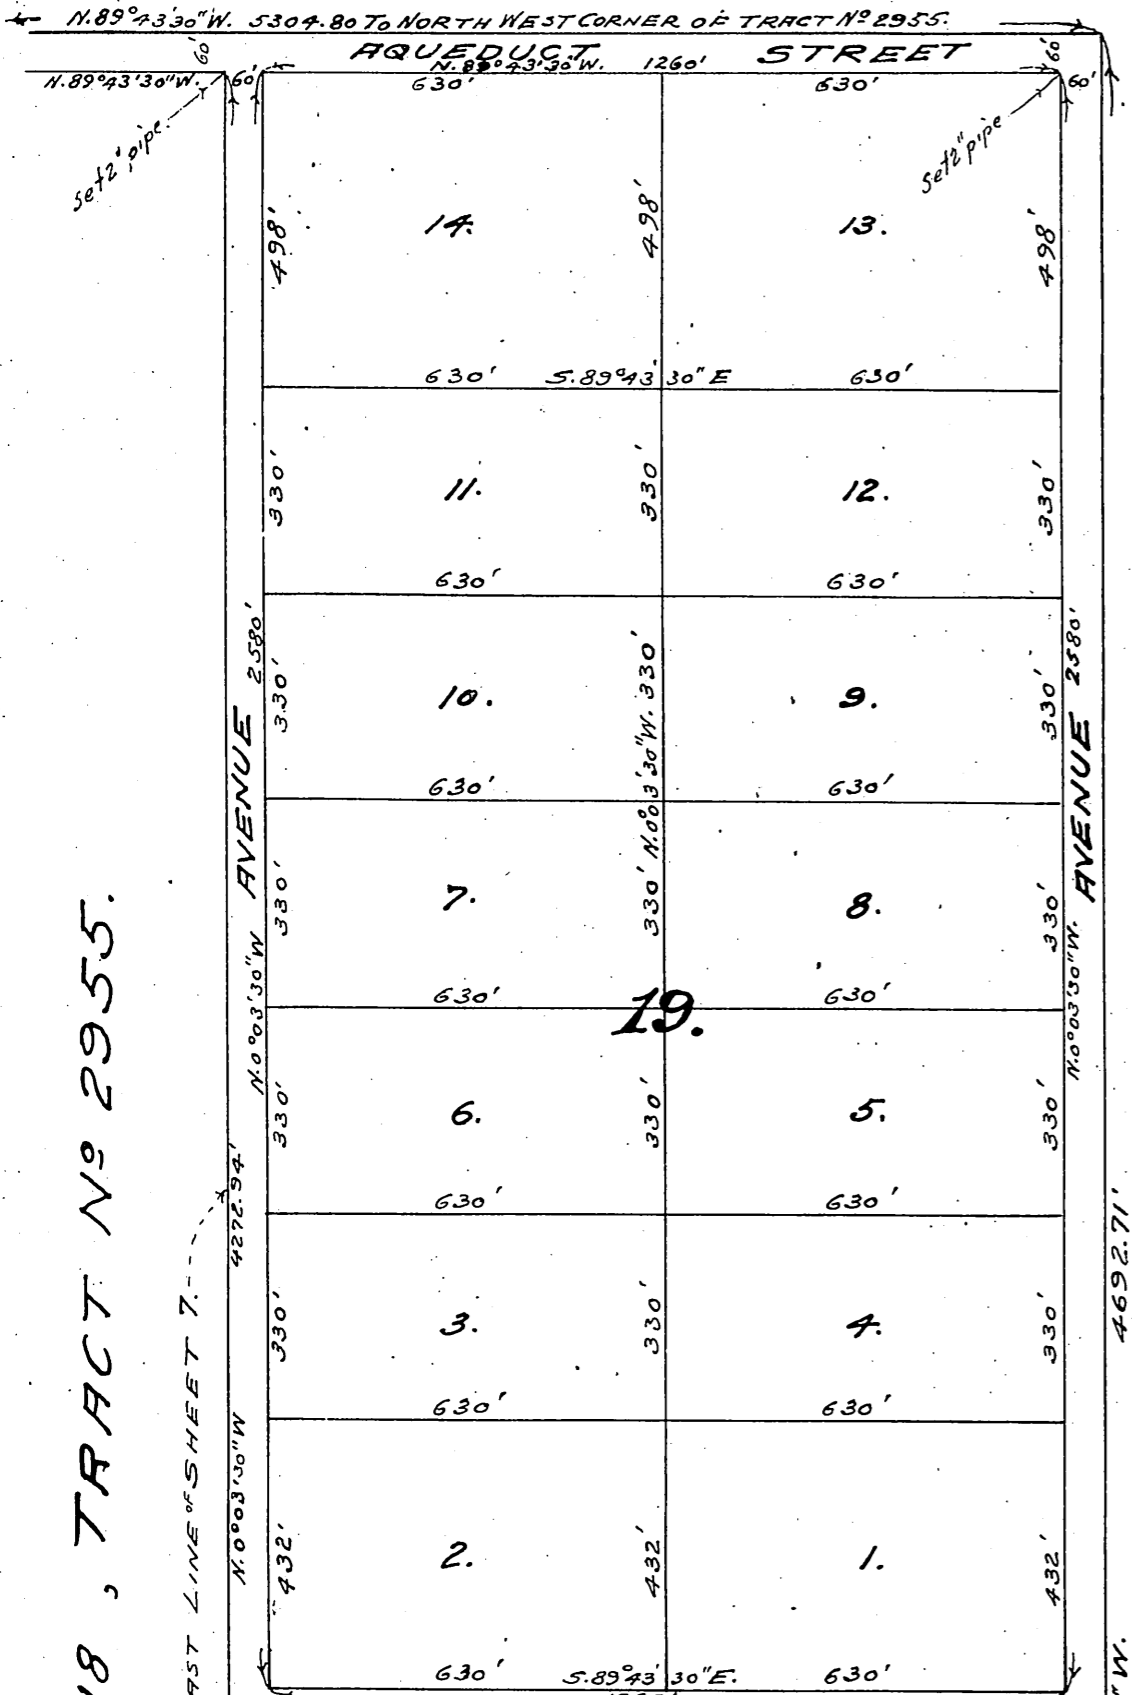 N.89°43'30"W. 5304.80 TO NORTH WEST CORNER OF TRACT Nº 2955.
60'
AQUEDUCT STREET
60'
N.89°43'30"W.
60'
N.89°43'30"W. 1260'
60'
630'
630'
set 2" pipe.
set 2" pipe
498'
14.
498'
13.
498'
630'
S.89°43'30"E
630'
330'
11.
330'
12.
330'
630'
630'
AVENUE 2580'
330'
10.
N.0°03'30"W. 330'
9.
330'
AVENUE 2580'
630'
630'
330'
7.
330'
8.
330'
N.0°03'30"W
N.0°03'30"W.
630'
19.
630'
330'
6.
330'
5.
330'
4272.94'
630'
630'
4692.71'
330'
3.
330'
4.
330'
630'
630'
N.0°03'30"W
432'
2.
432'
1.
432'
630'
S.89°43'30"E.
630'
18, TRACT Nº 2955.
AST LINE OF SHEET 7.
"W.